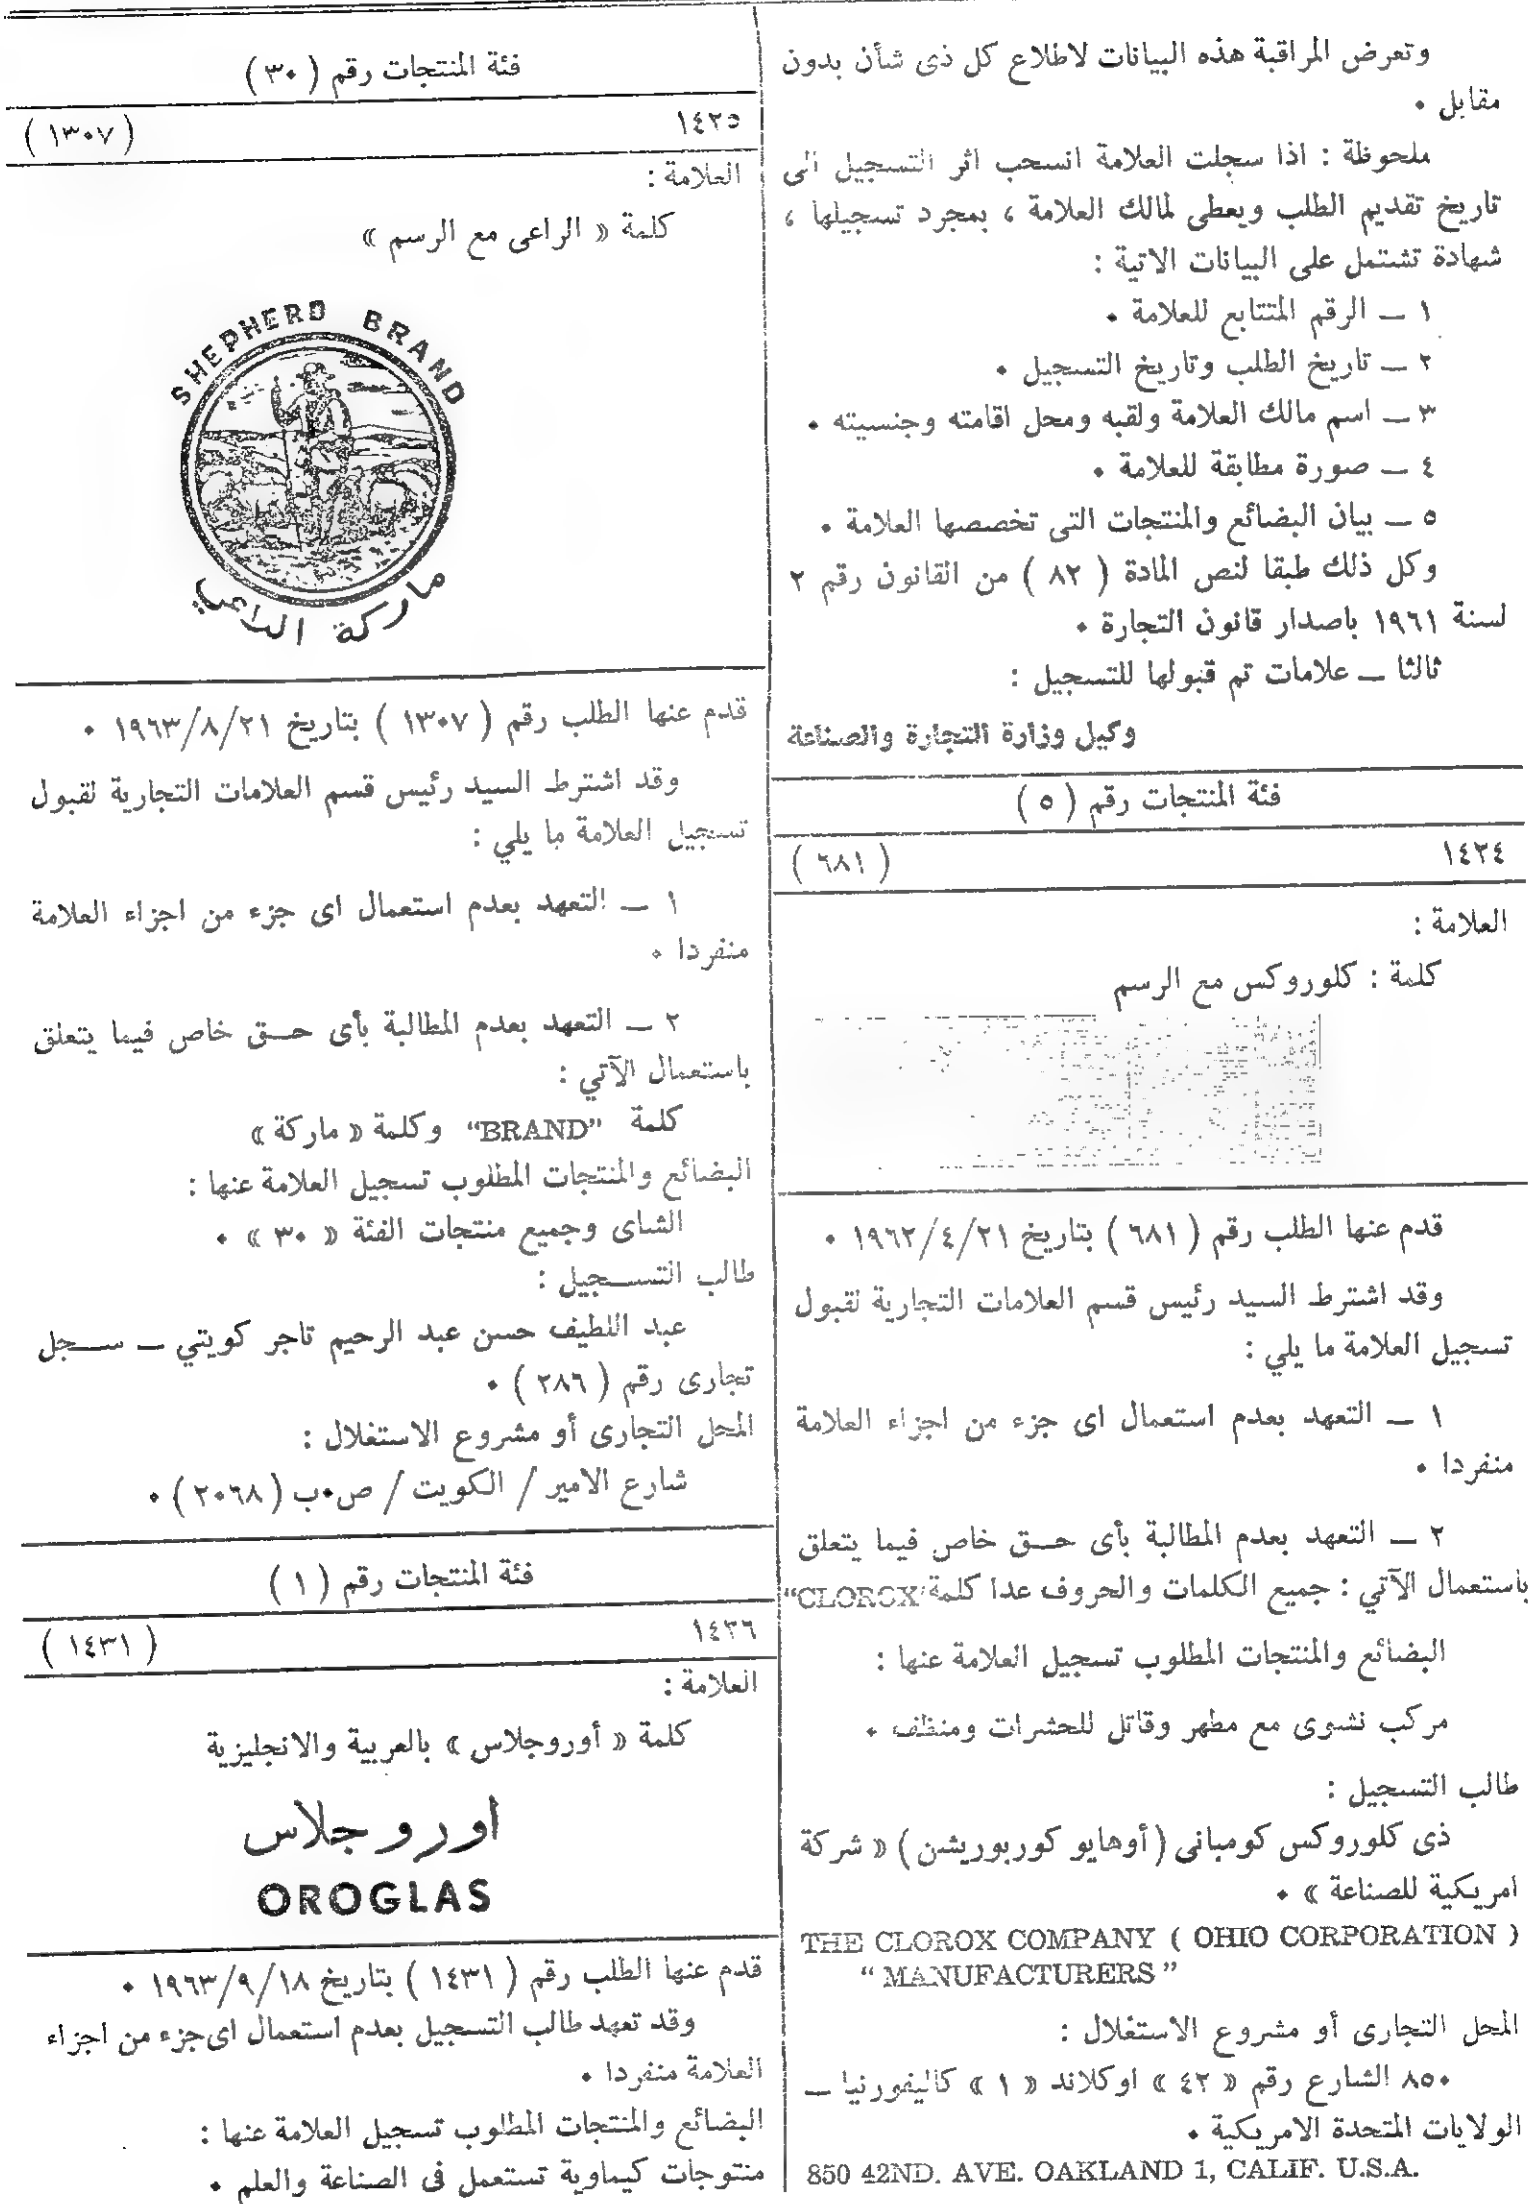 وتعرض المراقبة هذه البيانات لاطلاع كل ذى شأن بدون
مقابل ٠
ملحوظة : اذا سجلت العلامة انسحب اثر التسجيل الى
تاريخ تقديم الطلب ويعطى لمالك العلامة ، بمجرد تسجيلها ،
شهادة تشتمل على البيانات الاتية :
١ ــ الرقم المتتابع للعلامة ٠
٢ ــ تاريخ الطلب وتاريخ التسجيل ٠
٣ ــ اسم مالك العلامة ولقبه ومحل اقامته وجنسيته ٠
٤ ــ صورة مطابقة للعلامة ٠
٥ ــ بيان البضائع والمنتجات التى تخصصها العلامة ٠
وكل ذلك طبقا لنص المادة ( ٨٢ ) من القانون رقم ٢
لسنة ١٩٦١ باصدار قانون التجارة ٠
ثالثا ــ علامات تم قبولها للتسجيل :
وكيل وزارة التجارة والصناعة
فئة المنتجات رقم ( ٥ )
١٤٢٤ ( ٦٨١ )
العلامة :
كلمة : كلوروكس مع الرسم
قدم عنها الطلب رقم ( ٦٨١ ) بتاريخ ١٩٦٢/٤/٢١ ٠
وقد اشترط السيد رئيس قسم العلامات التجارية لقبول
تسجيل العلامة ما يلي :
١ ــ التعهد بعدم استعمال اى جزء من اجزاء العلامة
منفردا ٠
٢ ــ التعهد بعدم المطالبة بأى حــق خاص فيما يتعلق
باستعمال الآتي : جميع الكلمات والحروف عدا كلمة "CLOROX"
البضائع والمنتجات المطلوب تسجيل العلامة عنها :
مركب نشوى مع مطهر وقاتل للحشرات ومنظف ٠
طالب التسجيل :
ذى كلوروكس كومبانى ( أوهايو كوربوريشن ) « شركة
امريكية للصناعة » ٠
THE CLOROX COMPANY ( OHIO CORPORATION )
“ MANUFACTURERS ”
المحل التجارى أو مشروع الاستغلال :
٨٥٠ الشارع رقم « ٤٢ » اوكلاند « ١ » كاليفورنيا ــ
الولايات المتحدة الامريكية ٠
850 42ND. AVE. OAKLAND 1, CALIF. U.S.A.
فئة المنتجات رقم ( ٣٠ )
١٤٢٥ ( ١٣٠٧ )
العلامة :
كلمة « الراعى مع الرسم »
SHEPHERD BRAND
ماركة الراعي
قدم عنها الطلب رقم ( ١٣٠٧ ) بتاريخ ١٩٦٣/٨/٢١ ٠
وقد اشترط السيد رئيس قسم العلامات التجارية لقبول
تسجيل العلامة ما يلي :
١ ــ التعهد بعدم استعمال اى جزء من اجزاء العلامة
منفردا ٠
٢ ــ التعهد بعدم المطالبة بأى حــق خاص فيما يتعلق
باستعمال الآتي :
كلمة “BRAND” وكلمة « ماركة »
البضائع والمنتجات المطلوب تسجيل العلامة عنها :
الشاى وجميع منتجات الفئة « ٣٠ » ٠
طالب التســجيل :
عبد اللطيف حسن عبد الرحيم تاجر كويتي ــ ســجل
تجارى رقم ( ٢٨٦ ) ٠
المحل التجارى أو مشروع الاستغلال :
شارع الامير / الكويت / ص٠ب ( ٢٠٦٨ ) ٠
فئة المنتجات رقم ( ١ )
١٤٢٦ ( ١٤٣١ )
العلامة :
كلمة « أوروجلاس » بالعربية والانجليزية
اوروجلاس
OROGLAS
قدم عنها الطلب رقم ( ١٤٣١ ) بتاريخ ١٩٦٣/٩/١٨ ٠
وقد تعهد طالب التسجيل بعدم استعمال اى جزء من اجزاء
العلامة منفردا ٠
البضائع والمنتجات المطلوب تسجيل العلامة عنها :
منتوجات كيماوية تستعمل فى الصناعة والعلم ٠